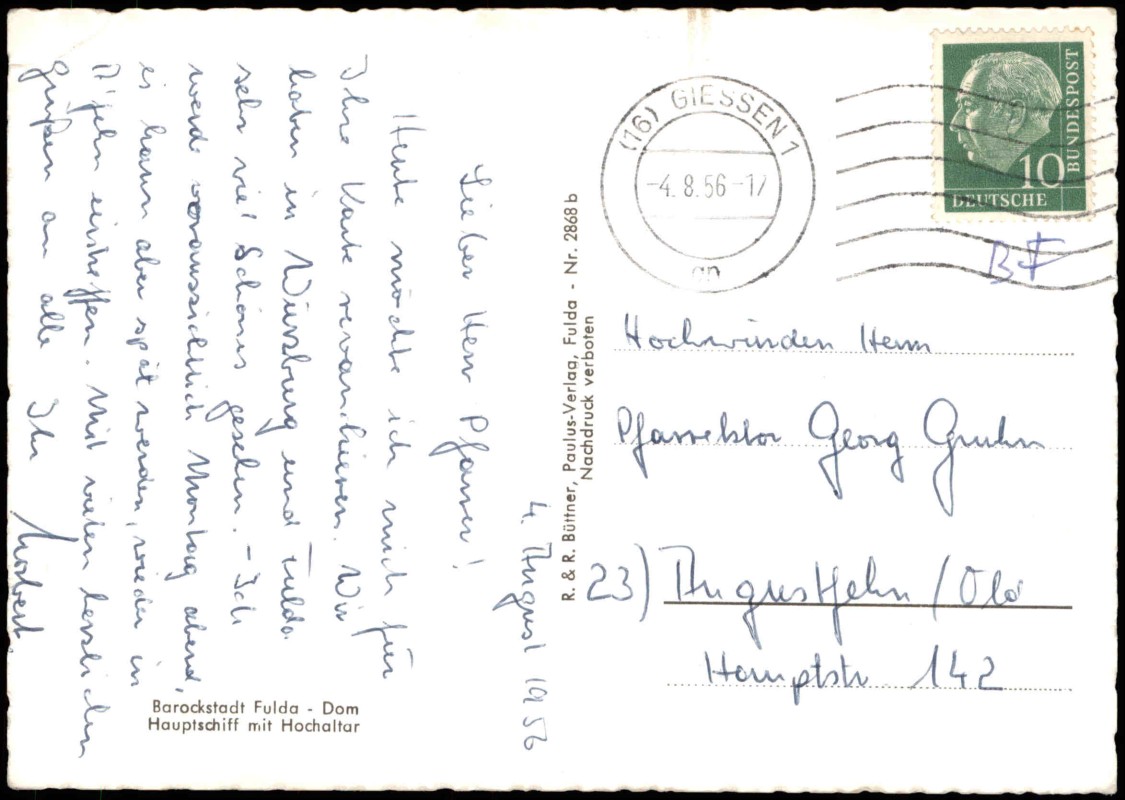 4. August 1956
Lieber Herr Pfarrer!
Heute möchte ich mich für
Ihre Karte revanchieren. Wir
haben in Würzburg und Fulda
sehr viel Schönes gesehen. - Ich
werde voraussichtlich Montag abend,
es kann aber spät werden, wieder in
A'fehn eintreffen. Mit vielen herzlichen
Grüßen an alle Ihr
Norbert.
Barockstadt Fulda - Dom
Hauptschiff mit Hochaltar
R. & R. Büttner, Paulus-Verlag, Fulda - Nr. 2868 b
Nachdruck verboten
(16) GIESSEN 1
-4.8.56-17
DEUTSCHE
BUNDESPOST
10
Hochwürden Herrn
Pfarrektor Georg Gruhn
23) Augustfehn / Old
Hauptstr 142